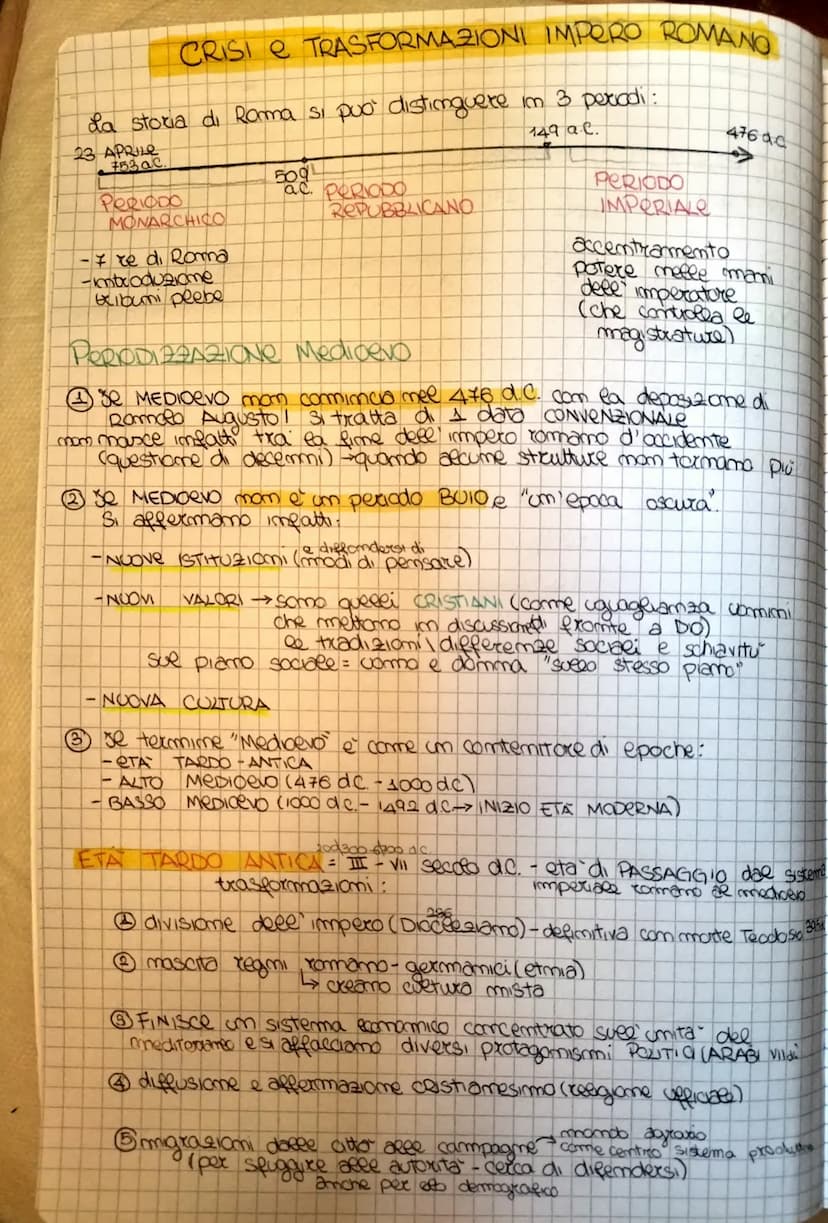 CRISI e TRASFORMAZIONI IMPERO ROMANO
La storia di Roma si può distinguere in 3 periodi:
23 APRILE
753 a.C.
509
a.C.
149 a.C.
476 d.C
PERIODO
MONARCHICO
PERIODO
REPUBBLICANO
PERIODO
IMPERIALE
- 7 re di Roma
- introduzione
tribuni plebe
accentramento
potere nelle mani
dell'imperatore
(che controlla le
magistrature)
PERIODIZZAZIONE Medioevo
① Il MEDIOEVO non comincia nel 476 d.C. con la deposizione di
Romolo Augusto! Si tratta di 1 data CONVENZIONALE
non nasce infatti tra la fine dell'impero romano d'occidente
(questione di decenni) → quando alcune strutture non tornano più
② Il MEDIOEVO non è un periodo BUIO e "un'epoca oscura".
Si affermano infatti:
- NUOVE ISTITUZIONI (modi di pensare)
e diffondersi di
- NUOVI VALORI → sono quelli CRISTIANI (come uguaglianza uomini
che mettono in discussione di fronte a DIO)
le tradizioni \ differenze sociali e schiavitù
sul piano sociale = uomo e donna "sullo stesso piano"
- NUOVA CULTURA
③ Il termine "Medioevo" è come un contenitore di epoche:
- ETÀ TARDO-ANTICA
- ALTO MEDIOEVO (476 dC - 1000 dC)
- BASSO MEDIOEVO (1000 d.C. - 1492 d.C → INIZIO ETÀ MODERNA)
ETÀ TARDO ANTICA = III - VII secolo d.C. - età di PASSAGGIO dal sistema
trasformazioni: imperiale romano al medioevo
① divisione dell'impero (Diocleziano) - definitiva con morte Teodosio
② nascita regni romano-germanici (etnia)
↳ creano cultura mista
③ FINISCE un sistema economico concentrato sull'unità del
mediterraneo e si affacciano diversi protagonismi POLITICI (ARABI VII
④ diffusione e affermazione cristianesimo (religione ufficiale)
⑤ migrazioni dalle città alle campagne → mondo agrario
come centro sistema
(per sfuggire alle autorità - cerca di difendersi)
anche per demografico